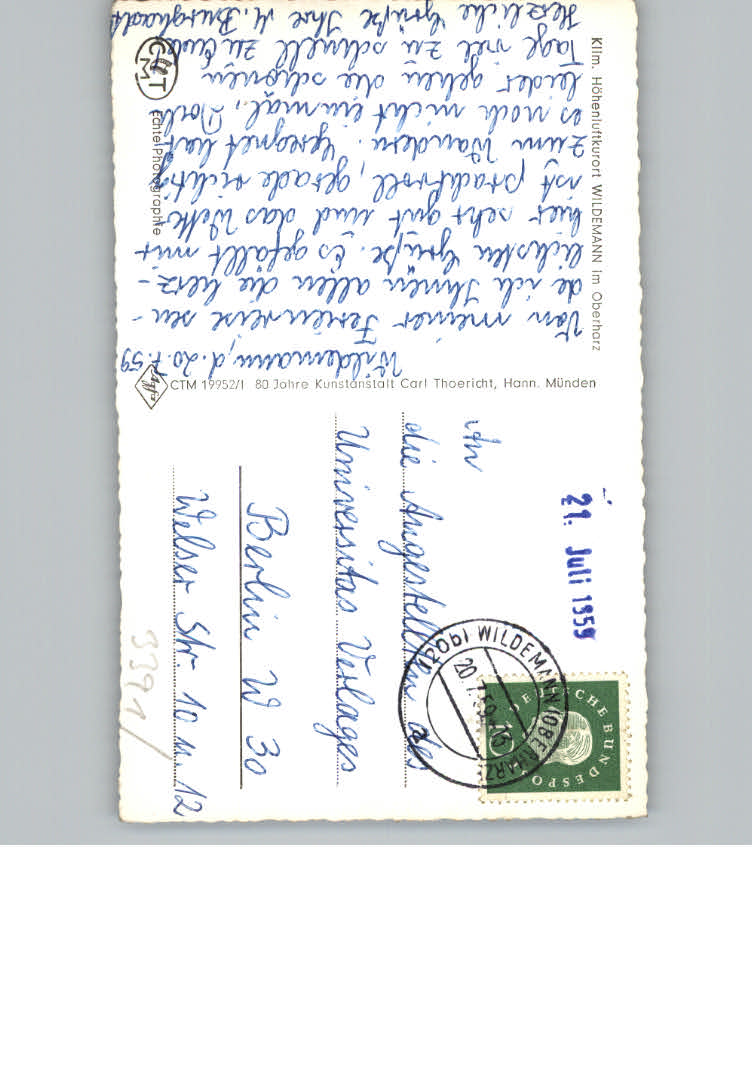 Klim. Höhenluftkurort WILDEMANN im Oberharz
Wildemann, d. 20.7.59
Von meiner Ferienreise sen-
de ich Ihnen allen die herz-
lichsten Grüße. Es gefällt mir
hier sehr gut und das Wetter
ist prachtvoll, gerade richtig
zum Wandern. Geregnet hat
es noch nicht einmal. Doch
leider gehen die schönen
Tage viel zu schnell zu Ende
Herzliche Grüße Ihre M. Burghardt
CTM
Echte Photographie
Agfa
CTM 19952/1 80 Jahre Kunstanstalt Carl Thoericht, Hann. Münden
21. Juli 1959
(20b) WILDEMANN (OBERHARZ)
20.7.59
DEUTSCHE BUNDESPOST
10
An
die Angestellten des
Universitas Verlages
Berlin W 30
Welser Str. 10 u. 12
3391